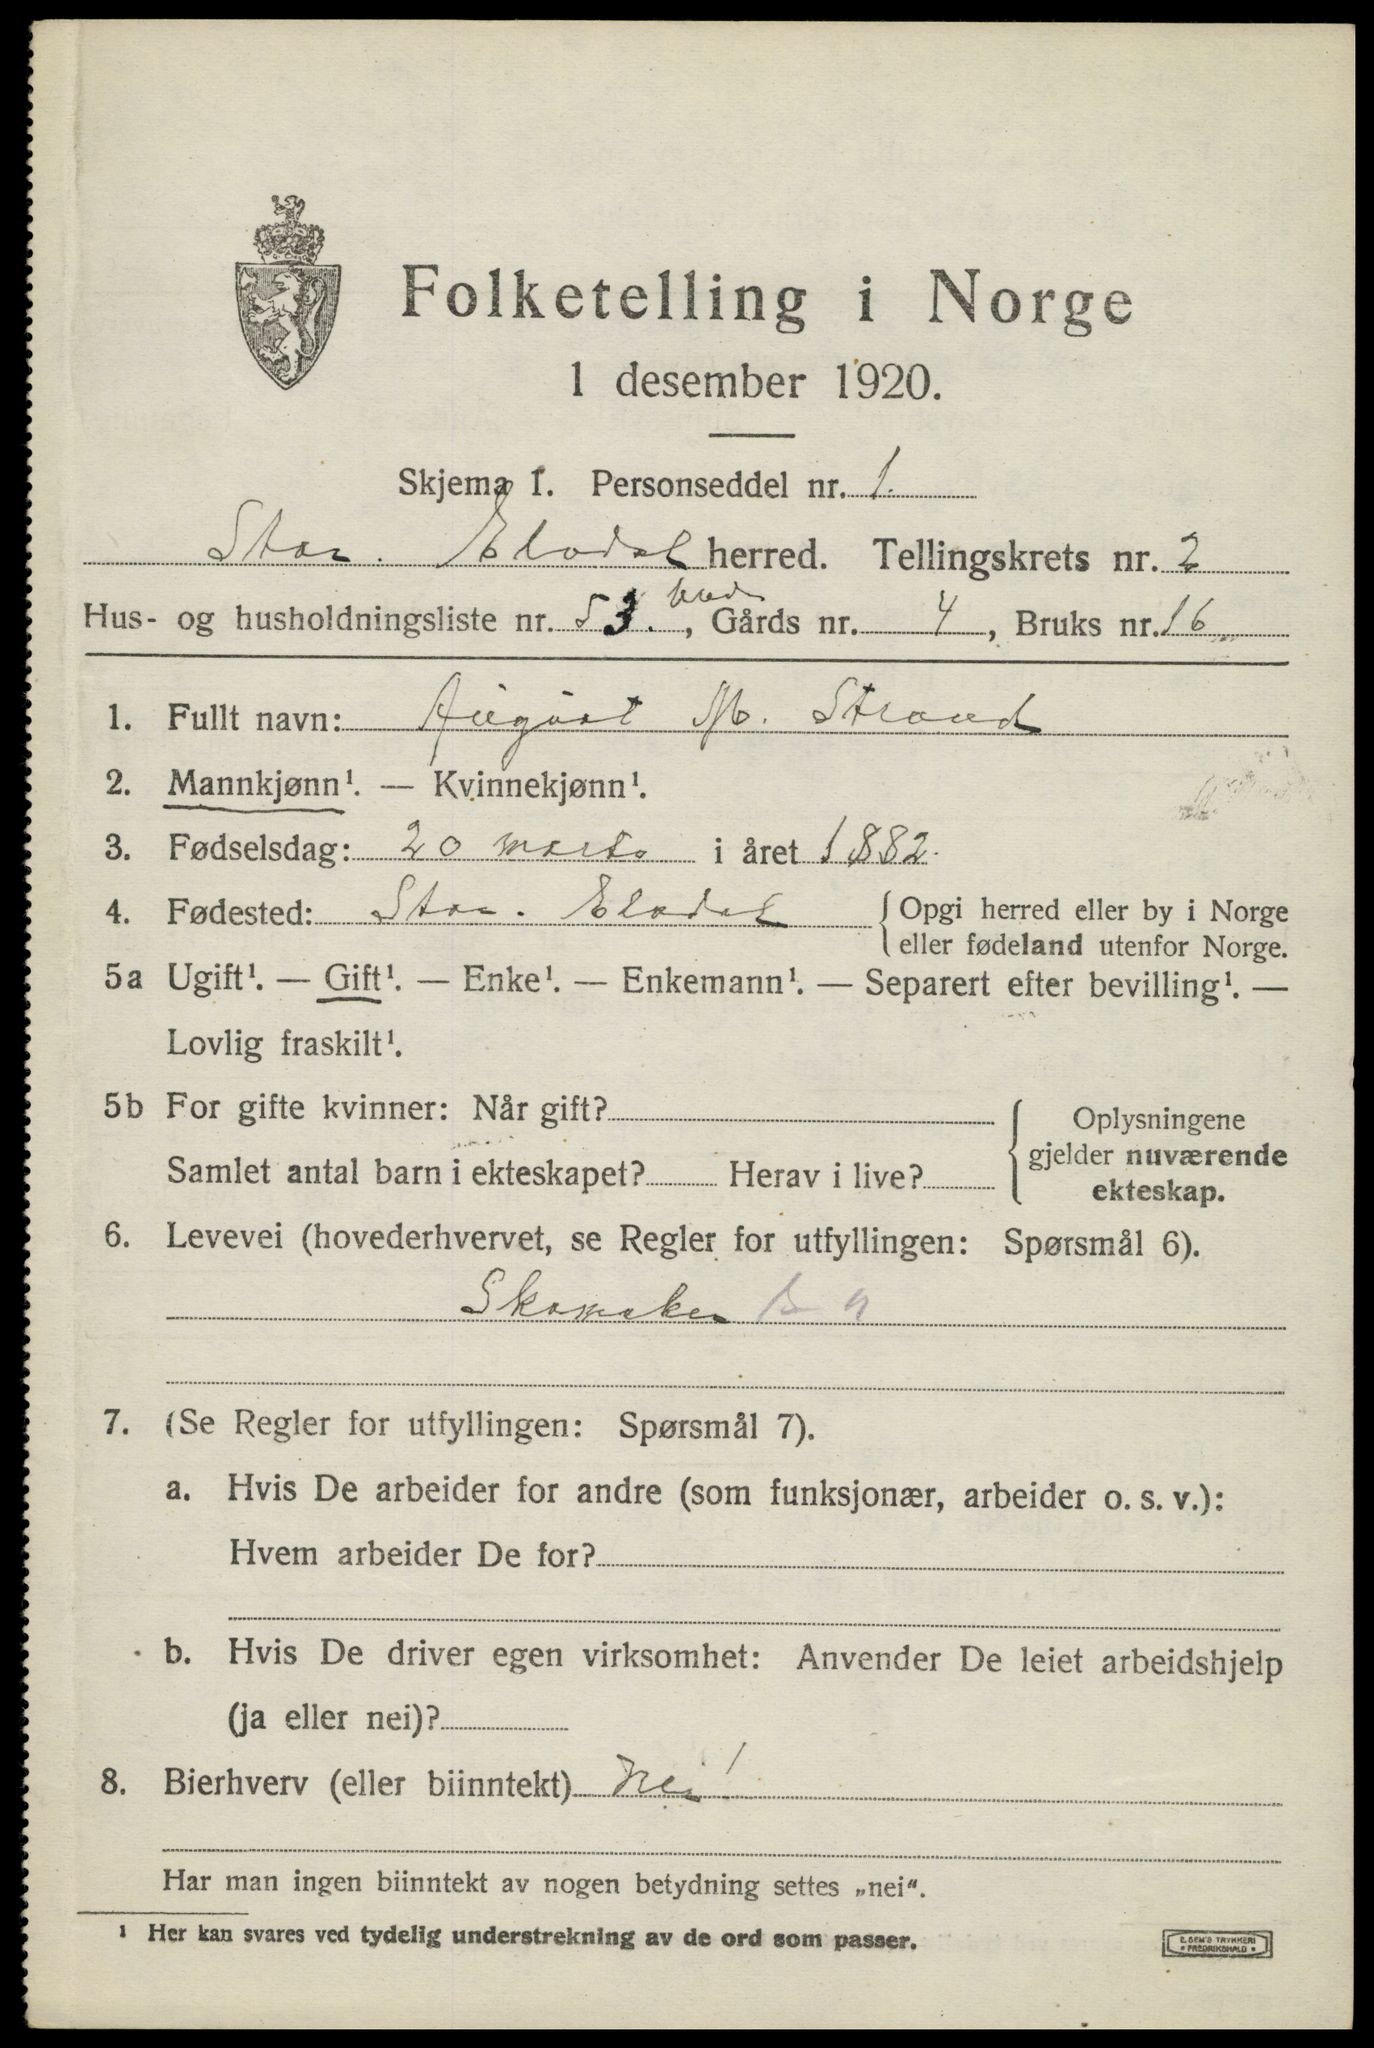 Folketelling i Norge
1 desember 1920.
Skjema 1. Personseddel nr. 1.
Stor. Elvdal herred. Tellingskrets nr. 2
Hus- og husholdningsliste nr. 53., Gårds nr. 4, Bruks nr. 16
1. Fullt navn: August M. Strand
2. Mannkjønn¹. — Kvinnekjønn¹.
3. Fødselsdag: 20 marts i året 1882.
4. Fødested: Stor. Elvdal { Opgi herred eller by i Norge
eller fødeland utenfor Norge.
5a Ugift¹. — Gift¹. — Enke¹. — Enkemann¹. — Separert efter bevilling¹. —
Lovlig fraskilt¹.
5b For gifte kvinner: Når gift?
Samlet antal barn i ekteskapet? Herav i live?
{ Oplysningene
gjelder nuværende
ekteskap.
6. Levevei (hovederhvervet, se Regler for utfyllingen: Spørsmål 6).
Skomaker
7. (Se Regler for utfyllingen: Spørsmål 7).
a. Hvis De arbeider for andre (som funksjonær, arbeider o. s. v.):
Hvem arbeider De for?
b. Hvis De driver egen virksomhet: Anvender De leiet arbeidshjelp
(ja eller nei)?
8. Bierhverv (eller biinntekt) Nei!
Har man ingen biinntekt av nogen betydning settes „nei“.
¹ Her kan svares ved tydelig understrekning av de ord som passer.
E. SEM'S TRYKKERI
• FREDRIKSHALD •